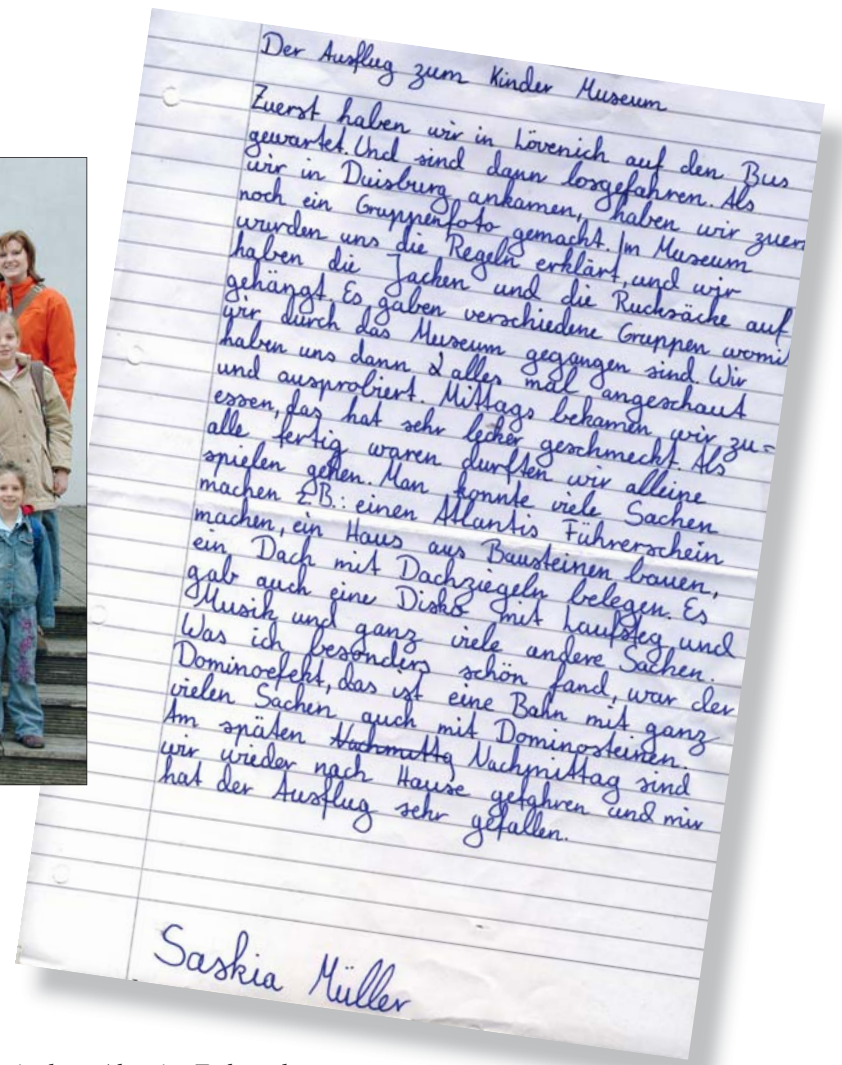 Der Ausflug zum Kinder Museum
Zuerst haben wir in Lövenich auf den Bus
gewartet. Und sind dann losgefahren. Als
wir in Duisburg ankamen, haben wir zuer
noch ein Gruppenfoto gemacht. Im Museum
wurden uns die Regeln erklärt, und wir
haben die Jacken und die Rucksäcke auf
gehängt. Es gaben verschiedene Gruppen womi
wir durch das Museum gegangen sind. Wir
haben uns dann alles mal angeschaut
und ausprobiert. Mittags bekamen wir zu=
essen, das hat sehr lecker geschmeckt. Als
alle fertig waren durften wir alleine
spielen gehen. Man konnte viele Sachen
machen z.B.: einen Atlantis Führerschein
machen, ein Haus aus Bausteinen bauen,
ein Dach mit Dachziegeln belegen. Es
gab auch eine Disko mit Laufsteg, und
Musik und ganz viele andere Sachen.
Was ich besonders schön fand, war der
Dominoefekt, das ist eine Bahn mit ganz
vielen Sachen auch mit Dominosteinen.
Am späten Nachmittag sind
wir wieder nach Hause gefahren und mir
hat der Ausflug sehr gefallen.
Saskia Müller